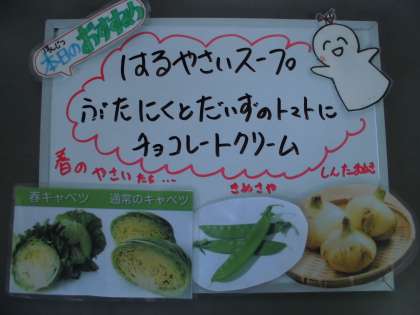 ほんじつ
本日のおすすめ
はるやさいスープ
ぶたにくとだいずのトマトに
チョコレートクリーム
春のやさいたち…
きぬさや
しんたまねぎ
春キャベツ 通常のキャベツ